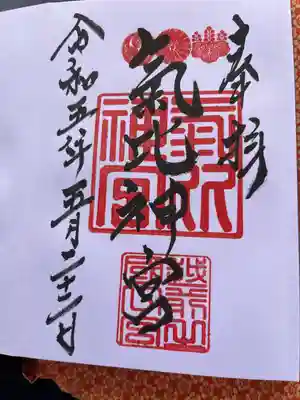 奉拝
氣比神宮
令和五年五月二十二日
氣比
神宮